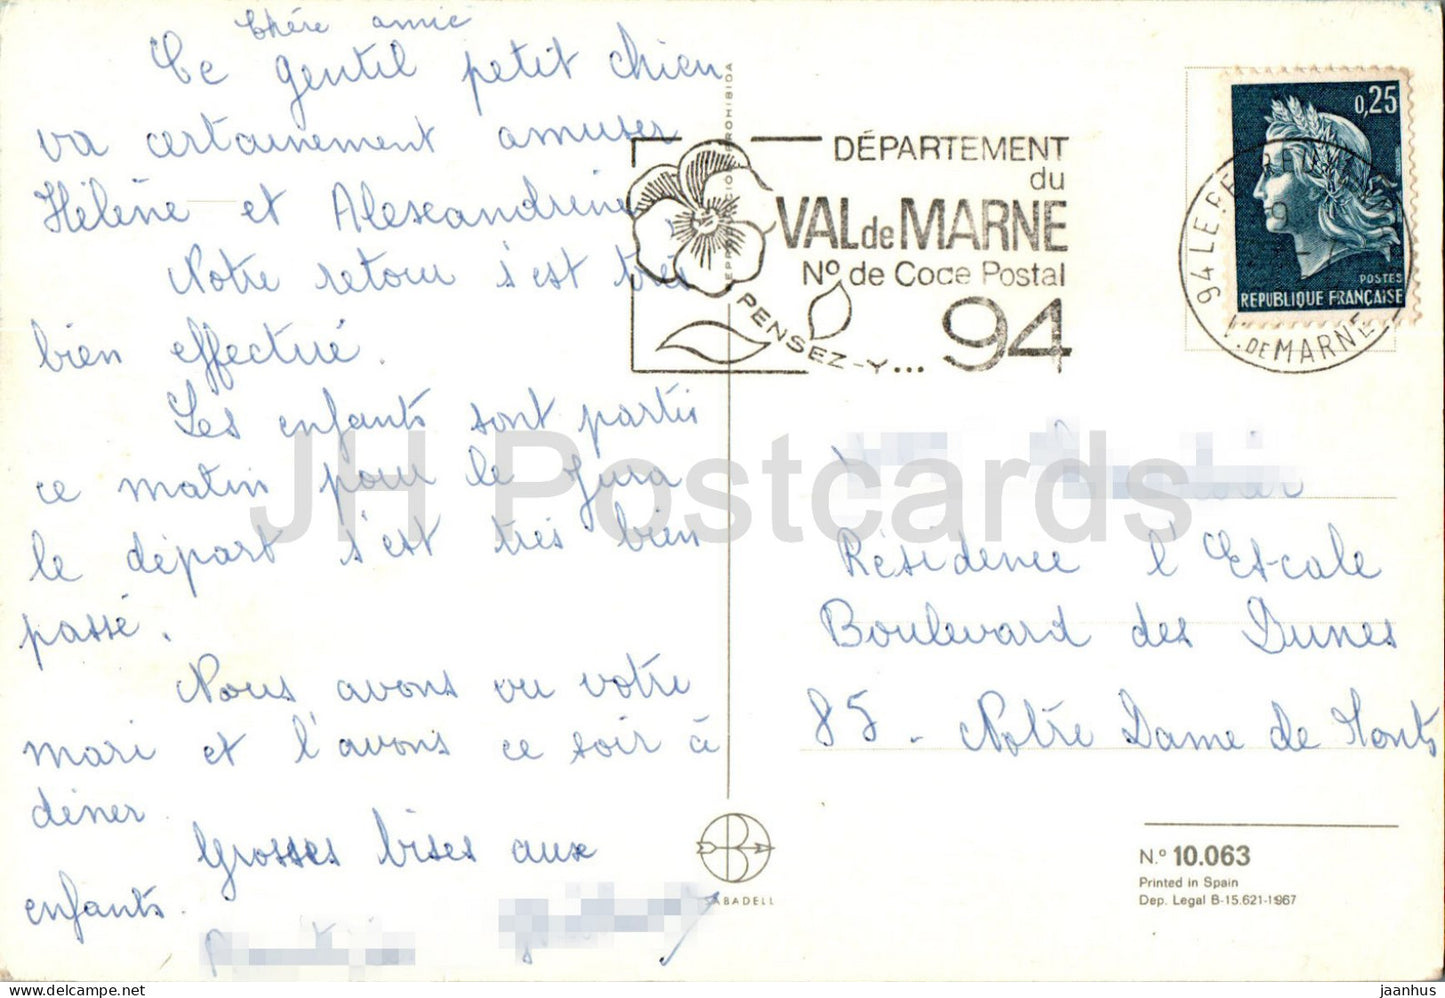 Chère amie
Ce gentil petit chien
va certainement amuser
Hélène et Alexandrine
Notre retour s'est très
bien effectué.
Les enfants sont partis
ce matin pour le Jura
le départ s'est très bien
passé.
Nous avons vu votre
mari et l'avons ce soir à
dîner
Grosses bises aux
enfants.
REPRODUCCION PROHIBIDA
SABADELL
DÉPARTEMENT
du
VAL de MARNE
No de Code Postal
94
PENSEZ-Y...
0,25
POSTES
REPUBLIQUE FRANÇAISE
94 LE
V. DE MARNE
Résidence l'Escale
Boulevard des Dunes
85 - Notre Dame de Monts
N.º 10.063
Printed in Spain
Dep. Legal B-15.621-1967
JH Postcards
jaanhus